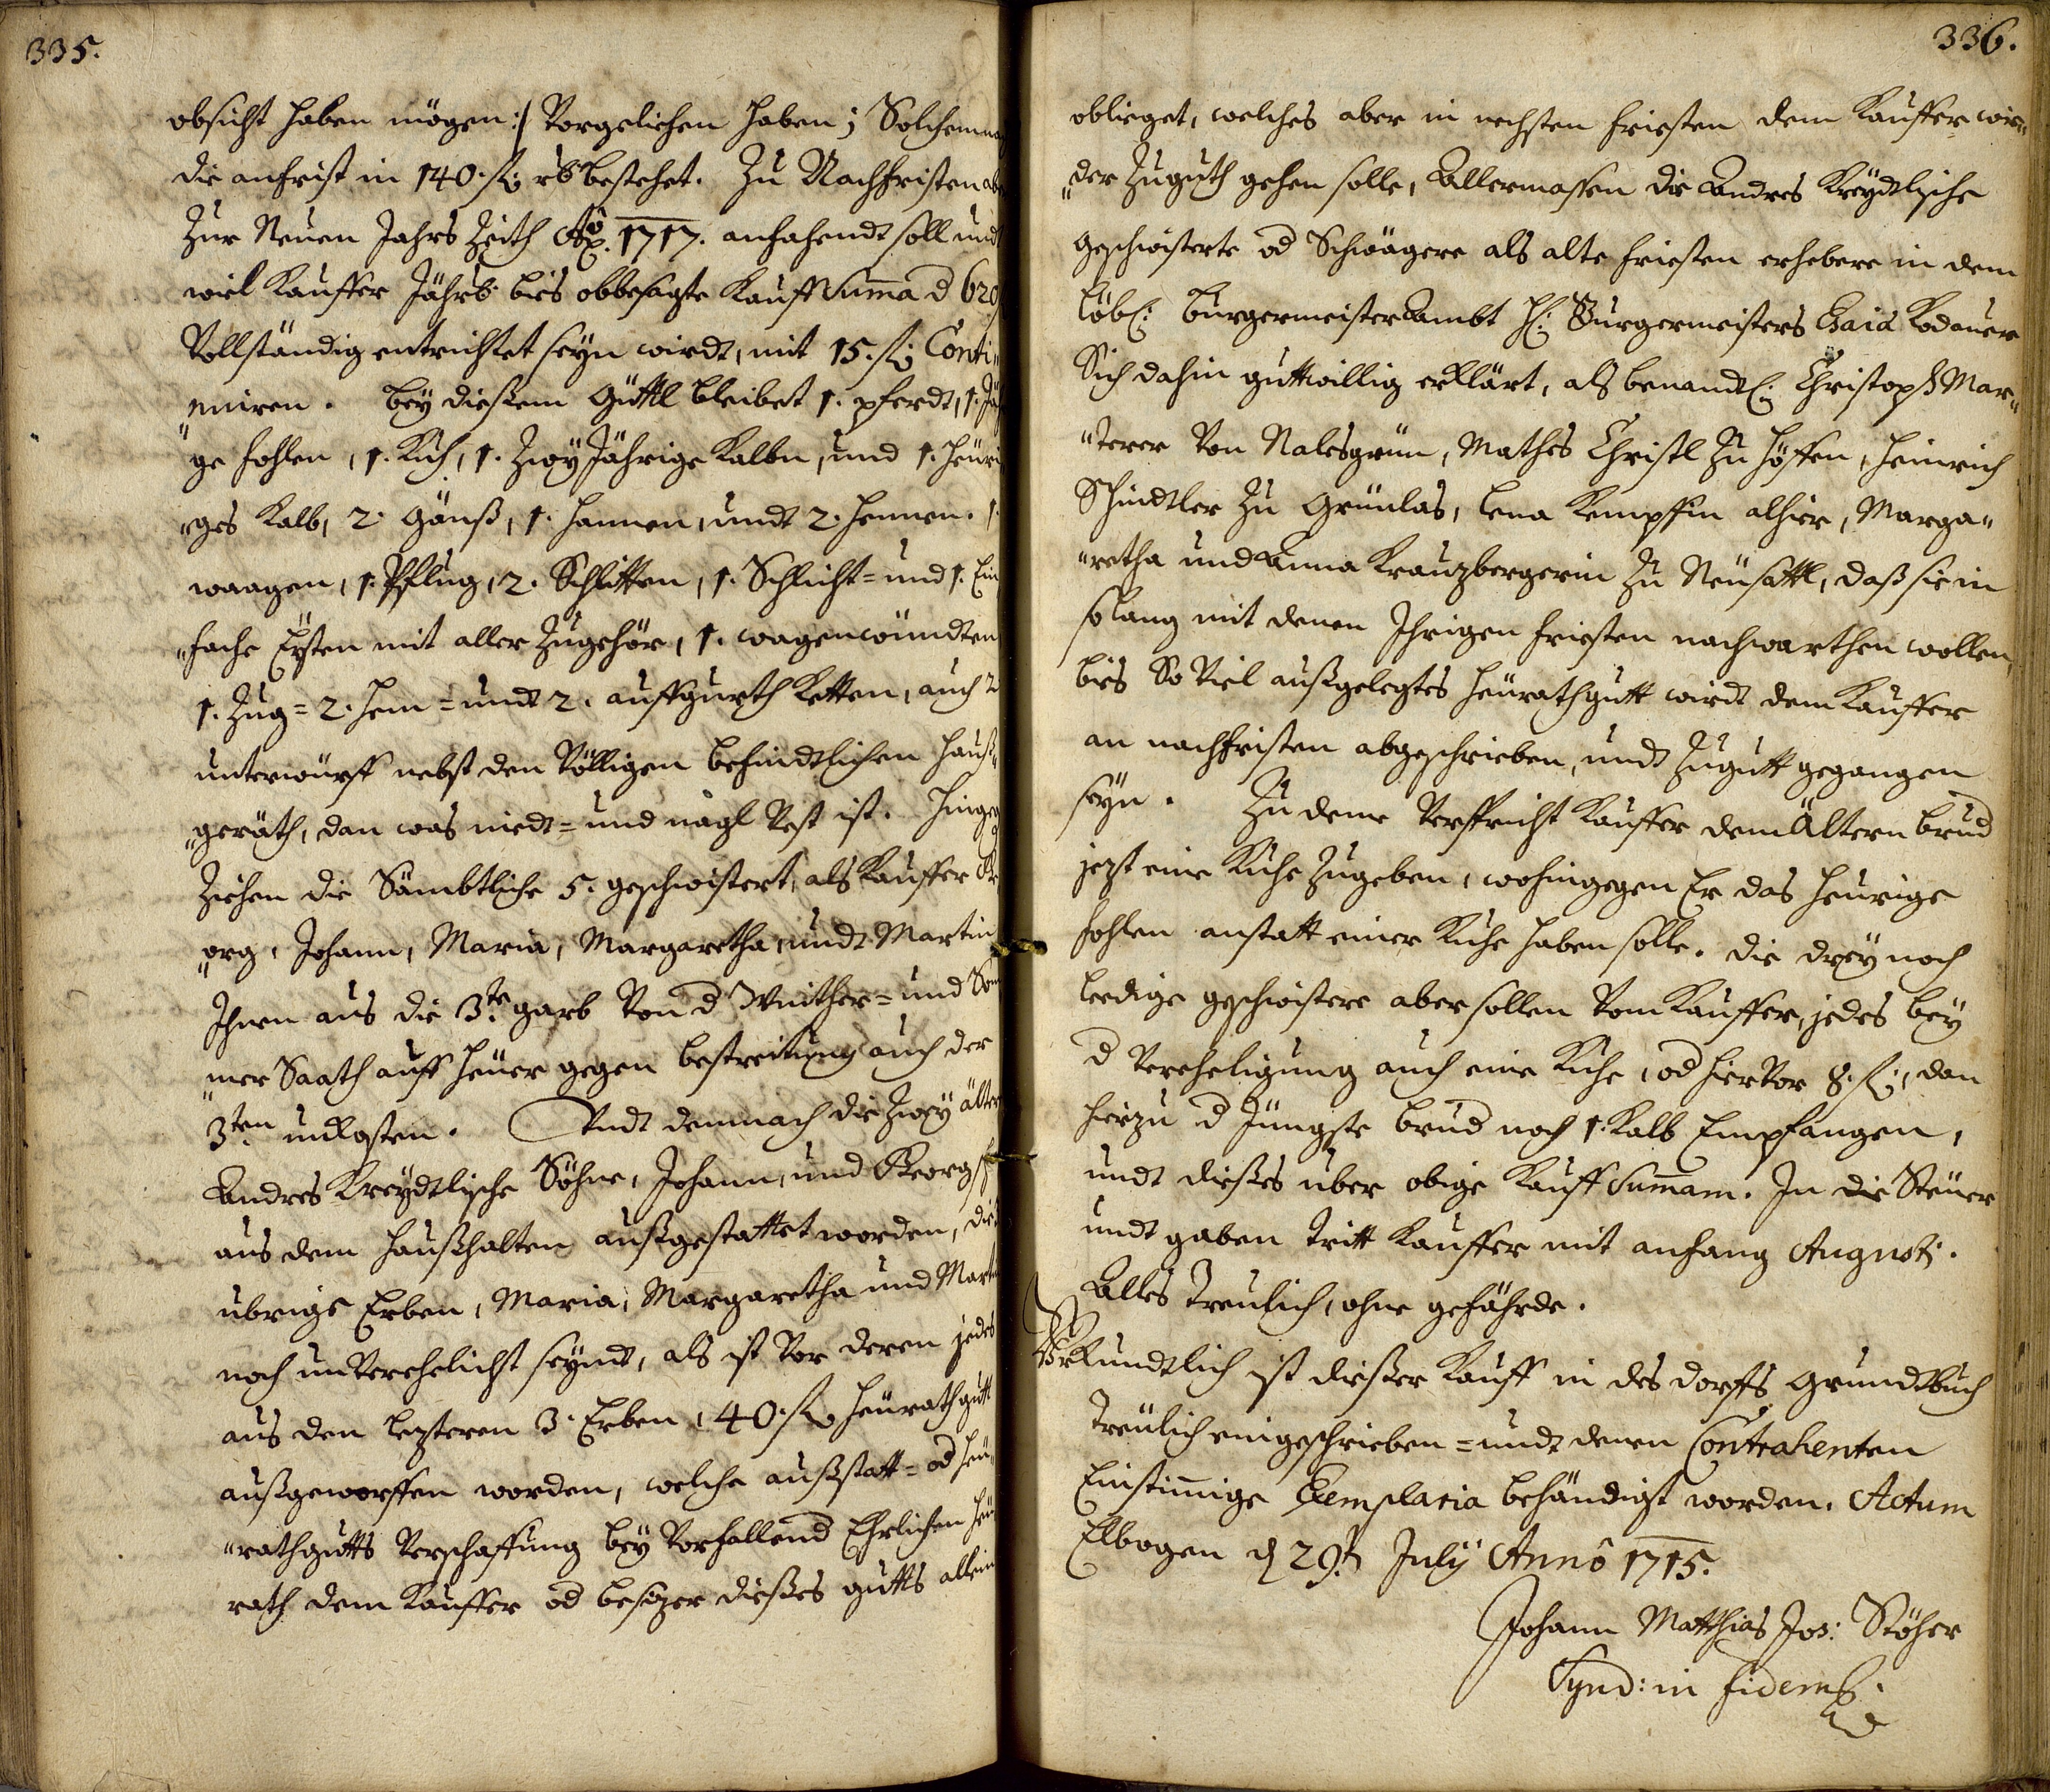 335.
obsicht haben mögen :/ Vorgeliehen haben; Solchemna
die anfrist in 140. fl: rh bestehet. Zu Nachfristen ab
Zur Neuen Jahrs Zeith Aō. 1717. anfahendt soll und
wiel Kauffer Jährl: bies obbesagte Kauff Suma d 620
Vollständig entrichtet seyn wirdt, mit 15. fl: Conti„
„nuiren. bey diesem Güttl bleibet 1. pferdt, 1. Jä
ge fohlen, 1. Kuh, 1. Zwey Jährige Kalbn, und 1. heüri
„ges Kalb, 2. Gänß, 1. hannen, undt 2. hennen. 1.
waagen, 1. Pflug, 2. Schlitten, 1. Schlicht= und 1. Ein
„fache Eysten mit aller Zugehör, 1. wagenwündten
1. Zug= 2. hem= undt 2. auffgurth Ketten, auch 2
unterwürff nebst den Völligen befindtlichen hauß„
„geräth, dan was niedt= und nagl Vest ist. hinge
Ziehen die Sämbtliche 5. geschwistert, als Kauffer Ge
„org, Johann, Maria, Margaretha, undt Martin
Ihnen aus die 3.te garb Von d Winther= und Som
„mer Saath auff heüer gegen bestreitung auch der
3ten unkosten. Undt demnach die Zwey älter
Andres Kreydtlische Söhne, Johann, und Georg
aus dem Haußhalten außgestattet worden, die
übrige Erben, Maria, Margaretha und Mart
noch unVerehelicht seyndt, als ist Vor deren jedes
aus den lezteren 3. Erben, 40. fl: heürathgutt
außgeworffen worden, welche außstatt= od heü„
„rathgutts Verschaffung bey Vorfallend Ehrlichen heü
rath dem Kauffer od besizer dießes gutts allein
336.
oblieget, welches aber in nechsten friesten dem Kauffer wie„
„der Zuguth gehen solle, Allermassen die Andres Kreydtlische
geschwisterte od Schwägere als alte friesten erhebere in dem
löbl: Burgermeister Ambt H: Burgermeisters Esaia Kodauer
Sich dahin guttwillig erklärt, als benandtl: Christoph Mar„
„terer Von Nalesgrün, Mathes Christl Zu Höffen, Heinrich
Schindtler Zu Grünlas, Lena Kempffin alhier, Marga„
„retha und Anna Kreuzbergerin Zu Neüsattl, daß sie in
solang mit denen Ihrigen friesten nachwarthen wollen,
bies So Viel außgelegtes heürathgutt wirdt dem Kauffer
an nachfristen abgeschrieben, undt Zugutt gegangen
seyn. Zu deme Verspricht Kauffer dem Ältern brud
jezt eine Kuhe Zugeben, wohingegen Er das heürige
fohlen anstatt einer Kuhe haben solle. die drey noch
leedige geschwistere aber sollen Vom Kauffer, jedes bey
d Vereheligung auch eine Kuhe, od hiervor 8. fl:, dan
hierzu d Jüngste brud noch 1. Kalb Empfangen,
undt dießes über obige Kauff Sumam. In die Steüer
undt gaben tritt Kauffer mit anfang Augusti.
Alles treülich, ohne gefährde.
Urkundtlich ist dießer Kauff in des dorffs Grundtbuch
treülich eingeschrieben= undt denen Contrahenten
Einstimige Exemplaria behändigt worden. Actum
Elbogen d 29.t July Annô 1715.
Johann Matthias Jos: Stöher
Synd: in fidem